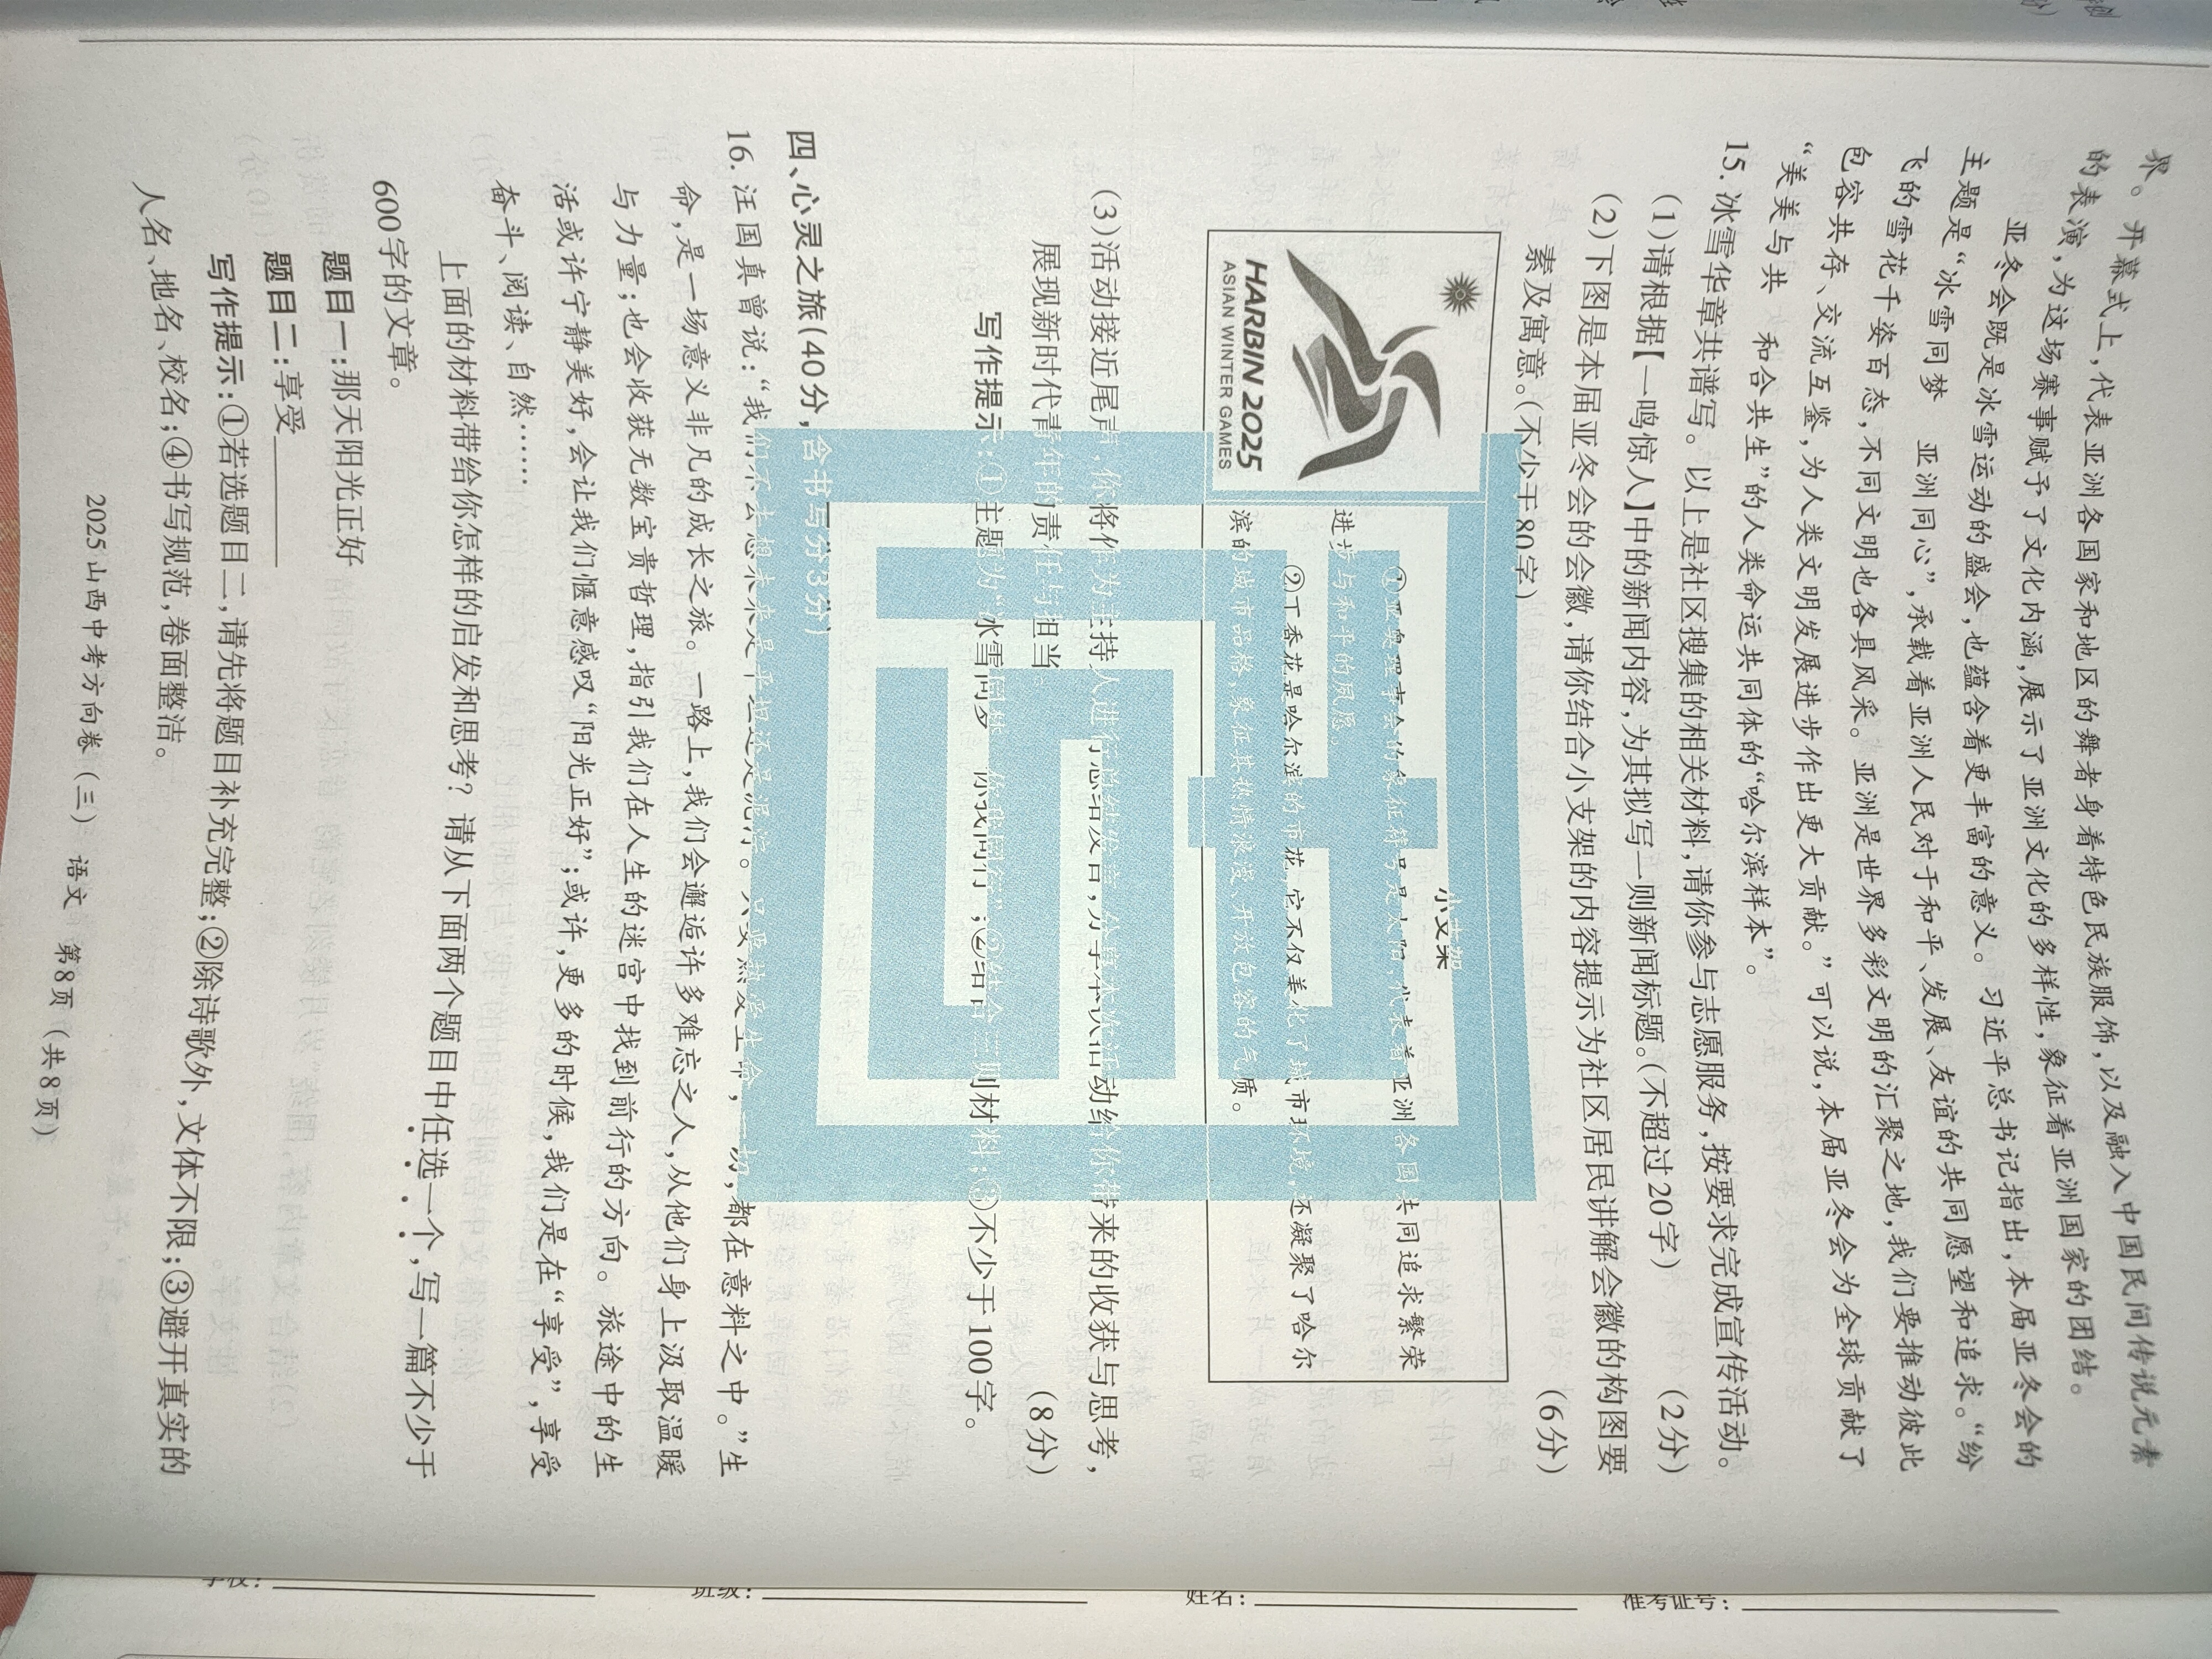 界。开幕式上，代表亚洲各国家和地区的舞者身着特色民族服饰，以及融入中国民间传说元素
的表演，为这场赛事赋予了文化内涵，展示了亚洲文化的多样性，象征着亚洲国家的团结。
亚冬会既是冰雪运动的盛会，也蕴含着更丰富的意义。习近平总书记指出，本届亚冬会的
主题是“冰雪同梦　亚洲同心”，承载着亚洲人民对于和平、发展、友谊的共同愿望和追求。“纷
飞的雪花千姿百态，不同文明也各具风采。亚洲是世界多彩文明的汇聚之地，我们要推动彼此
包容共存、交流互鉴，为人类文明发展进步作出更大贡献。”可以说，本届亚冬会为全球贡献了
“美美与共　和合共生”的人类命运共同体的“哈尔滨样本”。
15.冰雪华章共谱写。以上是社区搜集的相关材料，请你参与志愿服务，按要求完成宣传活动。
(1)请根据【一鸣惊人】中的新闻内容，为其拟写一则新闻标题。(不超过20字)　(2分)
(2)下图是本届亚冬会的会徽，请你结合小支架的内容提示为社区居民讲解会徽的构图要
素及寓意。(不少于80字)　(6分)
HARBIN 2025
ASIAN WINTER GAMES
小支架
①亚奥理事会的象征符号是太阳，代表着亚洲各国共同追求繁荣
进步与和平的夙愿。
②丁香花是哈尔滨的市花，它不仅美化了城市环境，还凝聚了哈尔
滨的城市品格，象征其热情浪漫、开放包容的气质。
(3)活动接近尾声，你将作为主持人进行总结发言，分享本次活动给你带来的收获与思考，
展现新时代青年的责任与担当。　(8分)
写作提示：①主题为“冰雪同梦　你我同行”；②结合三则材料；③不少于100字。
四、心灵之旅(40分，含书写分3分)
16.汪国真曾说：“我们不去想未来是平坦还是泥泞。只要热爱生命，一切，都在意料之中。”生
命，是一场意义非凡的成长之旅。一路上，我们会邂逅许多难忘之人，从他们身上汲取温暖
与力量；也会收获无数宝贵哲理，指引我们在人生的迷宫中找到前行的方向。旅途中的生
活或许宁静美好，会让我们惬意感叹“阳光正好”；或许，更多的时候，我们是在“享受”，享受
奋斗、阅读、自然……
上面的材料带给你怎样的启发和思考？请从下面两个题目中任选一个，写一篇不少于
600字的文章。
题目一：那天阳光正好
题目二：享受________
写作提示：①若选题目二，请先将题目补充完整；②除诗歌外，文体不限；③避开真实的
人名、地名、校名；④书写规范，卷面整洁。
2025山西中考方向卷（三）　语文　第8页（共8页）
学校：
班级：
姓名：
准考证号：